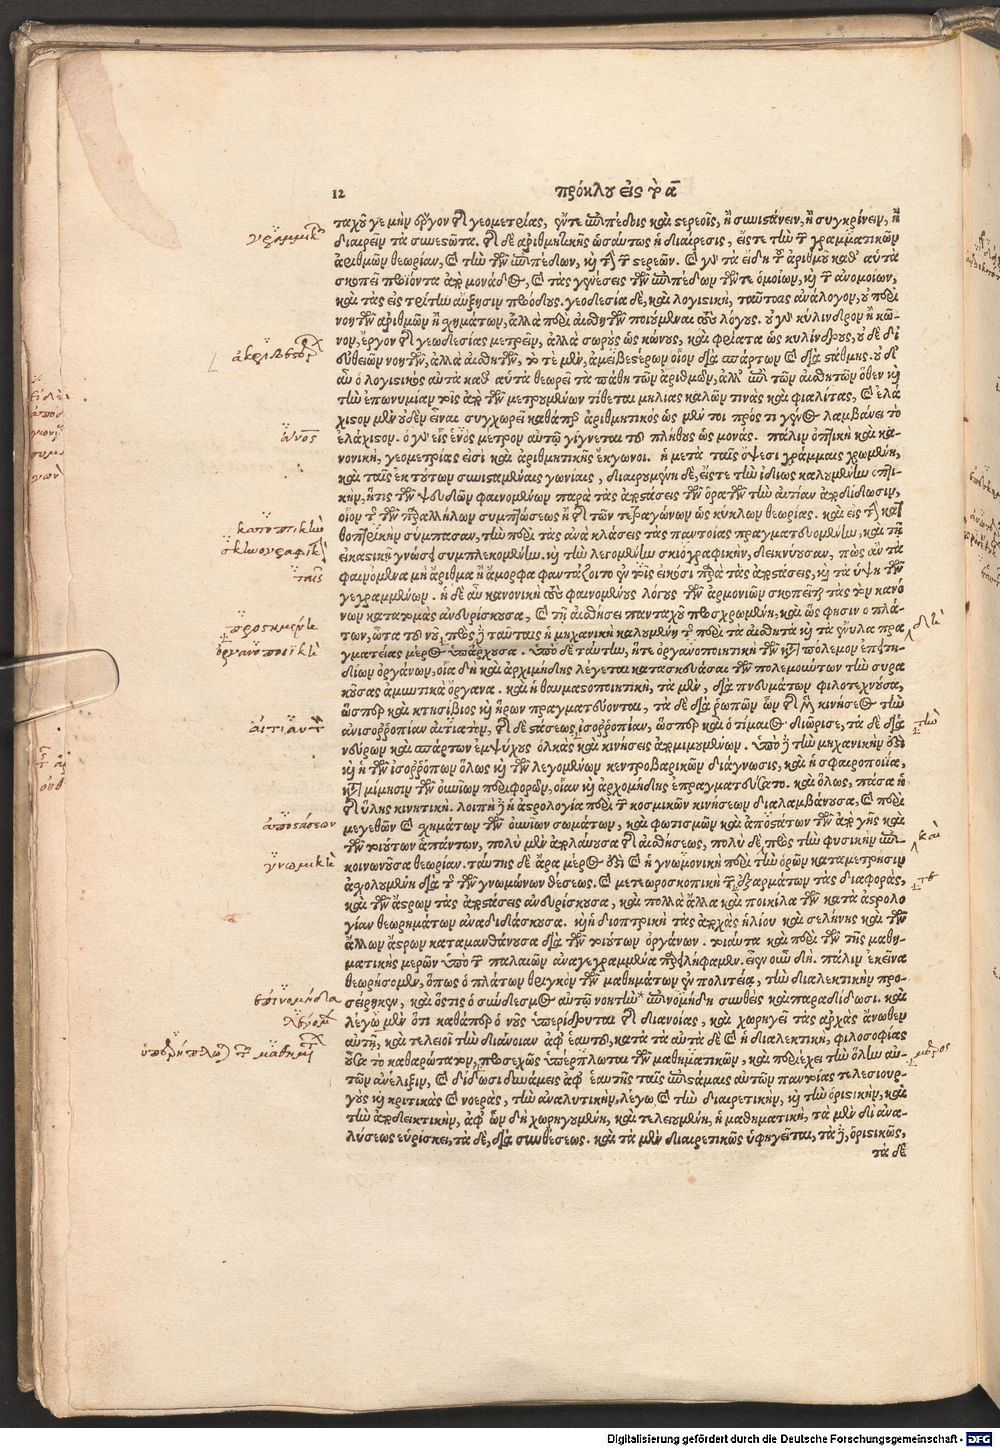 12
πρόκλου εἰς τὸ αʹ
ταχοῦ γε μὴν ἔργον ἐστὶ γεωμετρίας, ἔν τε ἐπιπέδοις καὶ στερεοῖς, ἢ συνιστάνειν, ἢ συγκρίνειν, ἢ
διαιρεῖν τὰ συνεστῶτα. τῆς δὲ ἀριθμητικῆς ὡσαύτως ἡ διαίρεσις, εἴς τε τὴν τῶν γραμματικῶν
ἀριθμῶν θεωρίαν, καὶ τὴν τῶν ἐπιπέδων, καὶ τὴν τῶν στερεῶν. καὶ γὰρ τὰ εἴδη τοῦ ἀριθμοῦ καθ' αὑτὰ
σκοπεῖ προϊόντα ἀπὸ μονάδος, καὶ τὰς γενέσεις τῶν ἐπιπέδων τῶν τε ὁμοίων, καὶ τῶν ἀνομοίων,
καὶ τὰς εἰς τρίτην αὔξησιν προόδους. γεοδεσία δὲ, καὶ λογιστικὴ, ταύταις ἀνάλογον, οὐ περὶ
νοητῶν ἀριθμῶν ἢ σχημάτων, ἀλλὰ περὶ αἰσθητῶν ποιούμεναι τοὺς λόγους. οὐ γὰρ κύλινδρον ἢ κῶ-
νον, ἔργον τῆς γεωδεσίας μετρεῖν, ἀλλὰ σωροὺς ὡς κώνους, καὶ φρέατα ὡς κυλίνδρους, οὐδὲ δι'
εὐθειῶν νοητῶν, ἀλλὰ αἰσθητῶν, τοτὲ μὲν, ἀμειβεστέρων οἷον διὰ σπάρτων καὶ διὰ στάθμης. οὐδ'
αὖ ὁ λογιστικὸς αὐτὰ καθ' αὑτὰ θεωρεῖ τὰ πάθη τῶν ἀριθμῶν, ἀλλ' ἐπὶ τῶν αἰσθητῶν ὅθεν καὶ
τὴν ἐπωνυμίαν τοῖς ἀπὸ τῶν μετρουμένων τίθεται μηλίας καλῶν τινὰς καὶ φιαλίτας, καὶ ἐλά
χιστον μὲν οὐδὲν εἶναι συγχωρεῖ καθάπερ ὁ ἀριθμητικός ὡς μέν τοι πρός τι γένος λαμβάνει τὸ
ἐλάχιστον. ὁ γὰρ εἷς ἑνὸς μέτρον αὐτῷ γίγνεται τοῦ πλήθους ὡς μονάς. πάλιν ὀπτικὴ καὶ κα-
νονικὴ, γεομετρίας εἰσὶ καὶ ἀριθμητικῆς ἔκγονοι. ἡ μετὰ ταῖς ὄψεσι γράμμαις χρωμένη,
καὶ ταῖς ἐκ τούτων συνισταμέναις γωνίαις, διαιρουμένη δὲ, εἴς τε τὴν ἰδίως καλουμένην ὀπτι-
κὴν, ἥτις τῶν ψευδῶν φαινομένων παρὰ τὰς ἀποστάσεις τῶν ὁρατῶν τὴν αἰτίαν ἀποδίδωσιν,
οἷον τῆς τῶν παραλλήλων συμπτώσεως ἢ τῆς τῶν τετραγώνων ὡς κύκλων θεωρίας. καὶ εἰς τὴν κα
θοπτρικὴν σύμπασαν, τὴν περὶ τὰς ἀνακλάσεις τὰς παντοίας πραγματευομένην, καὶ τῇ
εἰκαστικῇ γνώσει συμπλεκομένην. καὶ τὴν λεγομένην σκιογραφικὴν, δεικνύουσαν, πῶς ἂν τὰ
φαινόμενα μὴ ἄριθμα ἢ ἄμορφα φαντάζοιτο ἐν τοῖς εἰκόσι παρὰ τὰς ἀποστάσεις, καὶ τὰ ὕψη τῶν
γεγραμμένων. ἡ δὲ αὖ κανονικὴ τοὺς φαινομένους λόγους τῶν ἁρμονιῶν σκοπεῖται τὰς τῶν κανό
νων κατατομὰς ἀνευρίσκουσα, καὶ τῇ αἰσθήσει πανταχοῦ προσχρωμένη, καὶ ὥς φησιν ὁ πλά-
των, ὦτα τοῦ νοῦ, πρὸς δὲ ταύταις ἡ μηχανικὴ καλουμένη τῆς περὶ τὰ αἰσθητὰ καὶ τὰ ἔνυλα πρα
γματείας μέρος ὑπάρχουσα. ὑπὸ δὲ ταύτην, ἥ τε ὀργανοποιητικὴ τῶν κατὰ πόλεμον ἐπιτη-
δείων ὀργάνων, οἷα δὴ καὶ ἀρχιμήδης λέγεται κατασκευάσαι τῶν πολεμούντων τὴν συρα
κοῦσας ἀμυντικὰ ὄργανα. καὶ ἡ θαυμαστοποιητικὴ, τὰ μὲν, διὰ πνευμάτων φιλοτεχνοῦσα,
ὥσπερ καὶ κτησίβιος καὶ ἥρων πραγματεύονται, τὰ δὲ διὰ ῥοπῶν ὧν τῆς μὲν κινήσεως τὴν
ἀνισορροπίαν αἰτιατὸν, τῆς δὲ στάσεως ἰσορροπίαν, ὥσπερ καὶ ὁ τίμαιος διώρισε, τὰ δὲ διὰ
νεύρων καὶ σπάρτων ἐμψύχους ὁλκὰς καὶ κινήσεις ἀπομιμουμένων. ὑπὸ δὲ τὴν μηχανικήν ἐστι
καὶ ἡ τῶν ἰσορρόπων ὅλως καὶ τῶν λεγομένων κεντροβαρικῶν διάγνωσις, καὶ ἡ σφαιροποιΐα,
κατὰ μίμησιν τῶν οὐρανίων περιφορῶν, οἵαν καὶ ἀρχομήδης ἐπραγματεύσατο. καὶ ὅλως, πᾶσα ἡ
τῆς ὕλης κινητική. λοιπὴ δὲ ἡ ἀστρολογία περὶ τῶν κοσμικῶν κινήσεων διαλαμβάνουσα, καὶ περὶ
μεγεθῶν καὶ σχημάτων τῶν οὐρανίων σωμάτων, καὶ φωτισμῶν καὶ ἀποστάτων τῶν ἀπὸ γῆς καὶ
τῶν τοιούτων ἁπάντων, πολὺ μὲν ἀπολαύουσα τῆς αἰσθήσεως, πολὺ δὲ πρὸς τὴν φυσικὴν ἐπι-
κοινωνοῦσα θεωρίαν. ταύτης δὲ ἄρα μέρος ἐστὶ καὶ ἡ γνωμονικὴ περὶ τὴν ὡρῶν καταμέτρησιν
ἀσχολουμένη διὰ τῆς τῶν γνωμόνων θέσεως. καὶ μετεωροσκοπικὴ τῶν ἐξαρμάτων τὰς διαφορὰς,
καὶ τῶν ἄστρων τὰς ἀποστάσεις ἀνευρίσκουσα, καὶ πολλὰ ἄλλα καὶ ποικίλα τῶν κατὰ ἀστρολο
γίαν θεωρημάτων ἀναδιδάσκουσα. καὶ ἡ διοπτρικὴ τὰς ἀποχὰς ἡλίου καὶ σελήνης καὶ τῶν
ἄλλων ἄστρων καταμανθάνουσα διὰ τῶν τοιούτων ὀργάνων. τοιαῦτα καὶ περὶ τῶν τῆς μαθη-
ματικῆς μερῶν ὑπὸ τῶν παλαιῶν ἀναγεγραμμένα παρειλήφαμεν. εἶεν οὖν δή. πάλιν ἐκεῖνα
θεωρήσομεν, ὅπως ὁ πλάτων θριγκὸν τῶν μαθημάτων ἐν πολιτείᾳ, τὴν διαλεκτικὴν προ-
σείρηκεν, καὶ ὅστις ὁ σύνδεσμος αὐτῷ νοητὴν* ἐπινομήδη συνθεὶς καὶ παραδίδωσι. καὶ
λέγω μὲν ὅτι καθάπερ ὁ νοῦς ὑπερίδρυται τῆς διανοίας, καὶ χωρηγεῖ τὰς ἀρχὰς ἄνωθεν
αὐτῇ, καὶ τελειοῖ τὴν διάνοιαν ἀφ' ἑαυτοῦ, κατὰ τὰ αὐτὰ δὲ καὶ ἡ διαλεκτικὴ, φιλοσοφίας
οὖσα τὸ καθαρώτατον, προσεχῶς ὑπερήπλωται τῶν μαθηματικῶν, καὶ περιέχει τὴν ὅλην αὐ-
τῶν ἀνέλιξιν, καὶ δίδωσι δυνάμεις ἀφ' ἑαυτῆς ταῖς ἐπιστήμαις αὐτῶν παντοίας τελεσιουρ-
γοὺς καὶ κριτικὰς καὶ νοερὰς, τὴν ἀναλυτικὴν, λέγω, καὶ τὴν διαιρετικὴν, καὶ τὴν ὁριστικὴν, καὶ
τὴν ἀποδεικτικὴν, ἀφ' ὧν δὴ χωρηγουμένη, καὶ τελειουμένη, ἡ μαθηματικὴ, τὰ μὲν δι' ἀνα-
λύσεως εὑρίσκει, τὰ δὲ, διὰ συνθέσεως. καὶ τὰ μὲν διαιρετικῶς ὑφηγεῖται, τὰ δὲ, ὁριστικῶς,
τὰ δὲ
γραμμικῶν
ἀκριβέστε
ἑνὸς
κατοπτρικὴν
σκηνογραφικὴν
ταῖς
προσημένη
ὀργανοποιϊκὴ
αἰτιᾶται
ἀποστάσεων
γνωμικὴ
ἐπινομήδια
λέγομεν
ὑπερήπλωται τῶν μαθημα
δὲ
τὴν
καὶ
μέρος
Digitalisierung gefördert durch die Deutsche Forschungsgemeinschaft - DFG